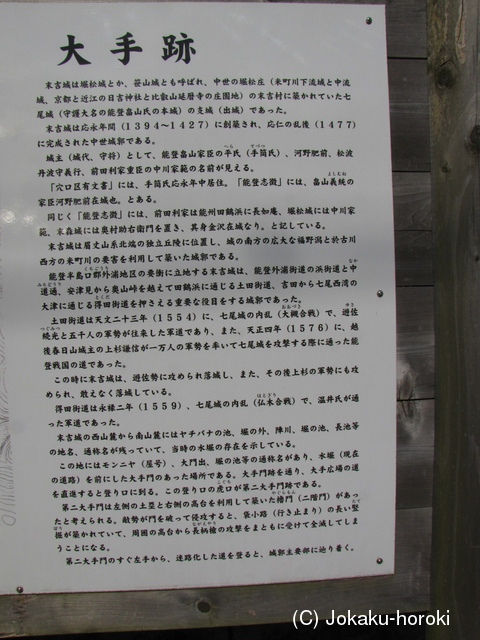 大手跡
末吉城は堀松城とか、笹山城とも呼ばれ、中世の堀松庄（米町川下流域と中流
域、京都と近江の日吉神社と比叡山延暦寺の庄園地）の末吉村に築かれていた七
尾城（守護大名の能登畠山氏の本城）の支城（出城）であった。
末吉城は応永年間（１３９４～１４２７）に創築され、応仁の乱後（１４７７）
に完成された中世城郭である。
城主（城代、守将）として、能登畠山家臣の平氏（手筒氏）、河野肥前、松波
丹波守義行、前田利家重臣の中川家範の名前が見える。
「穴口区有文書」には、手筒氏応永年中居住。「能登志徴」には、畠山義統の
家臣河野肥前在城也。とある。
同じく「能登志徴」には、前田利家は能州田鶴浜に長如庵、堀松城には中川家
範、末森城には奥村助右衛門を置き、其身金沢在城なり。と記している。
末吉城は眉丈山系北端の独立丘陵に位置し、城の南方の広大な福野潟と於古川
西方の米町川の要害を利用して築いた城郭である。
能登半島口郡外浦地区の要衝に立地する末吉城は、能登外浦街道の浜街道と中
道通、安津見から奥山峠を越えて田鶴浜に通じる土田街道、吉田から七尾西湾の
大津に通じる得田街道を押さえる重要な役目をする城郭であった。
土田街道は天文二十三年（１５５４）に、七尾城の内乱（大槻合戦）で、遊佐
続光と五千人の軍勢が往来した軍道であり、また、天正四年（１５７６）に、越
後春日山城主の上杉謙信が一万人の軍勢を率いて七尾城を攻撃する際に通った能
登戦国の道であった。
この時に末吉城は、遊佐勢に攻められ落城し、また、その後上杉の軍勢にも攻
められ、敢えなく落城している。
得田街道は永禄二年（１５５９）、七尾城の内乱（仏木合戦）で、温井氏が通
った軍道であった。
末吉城の西山麓から南山麓にはヤチバナの池、堀の外、陣川、堀の池、長池等
の地名、通称名が残っていて、当時の水堀の存在を示している。
この地にはモンニヤ（屋号）、大門出、堀の池等の通称名があり、水堀（現在
の道路）を前にした大手門のあった場所である。大手門跡を通り、大手広場の道
を直進すると登り口に到る。この登り口の虎口が第二大手門跡である。
第二大手門は左側の土塁と右側の高台を利用して築いた櫓門（二階門）があっ
たと考えられる。敵勢が門を破って侵攻すると、袋小路（行き止まり）の長い竪
堀が築かれていて、周囲の高台から長柄槍の攻撃をまともに受けて全滅してしま
うことになる。
第二大手門のすぐ左手から、迷路化した道を登ると、城郭主要部に辿り着く。
(C) Jokaku-horoki